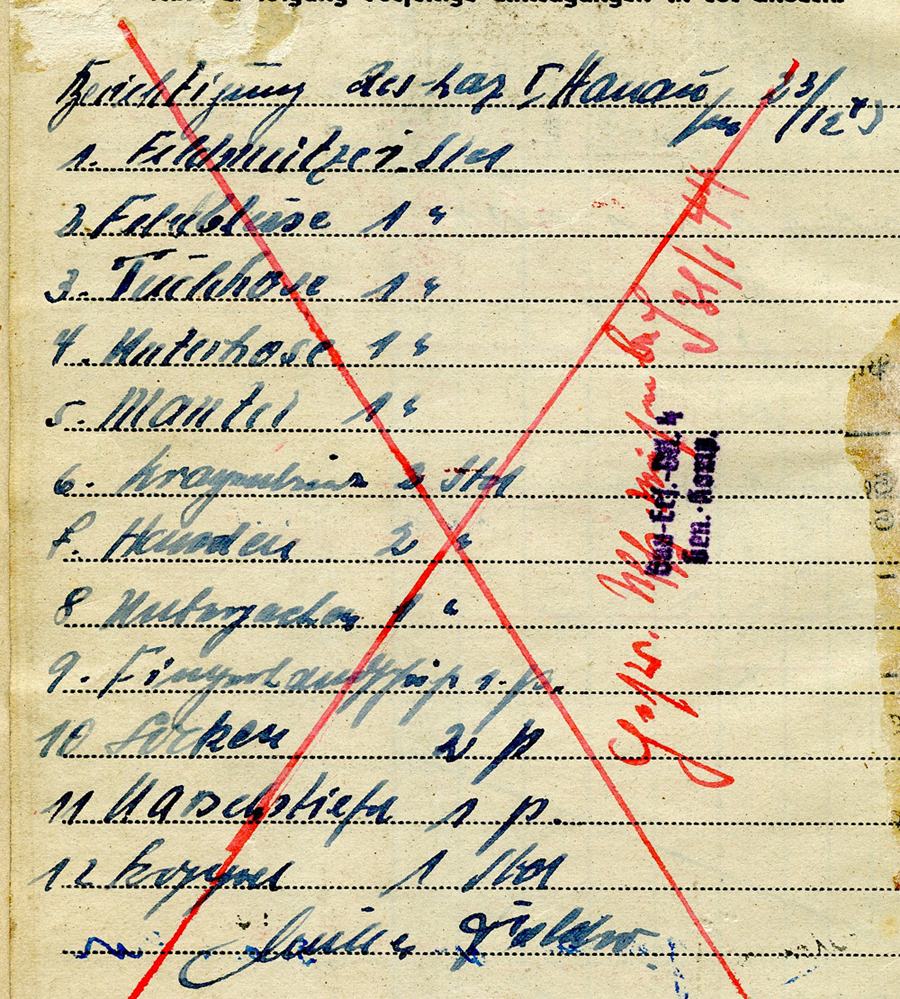 Berichtigung Res-Laz I, Hanau 23/12 43
1. Feldmütze 1 Stck
2. Feldbluse 1 "
3. Tuchhose 1 "
4. Unterhose 1 "
5. Mantel 1 "
6. Kragenbinde 2 Stck
7. Hemden 2 "
8 Unterjacken 1 "
9. Fingerhandschuhe 1. p.
10 Socken 2 p
11 Marschstiefel 1 p.
12 Koppel 1 Stck
31/1 44
Gen.-Komp.